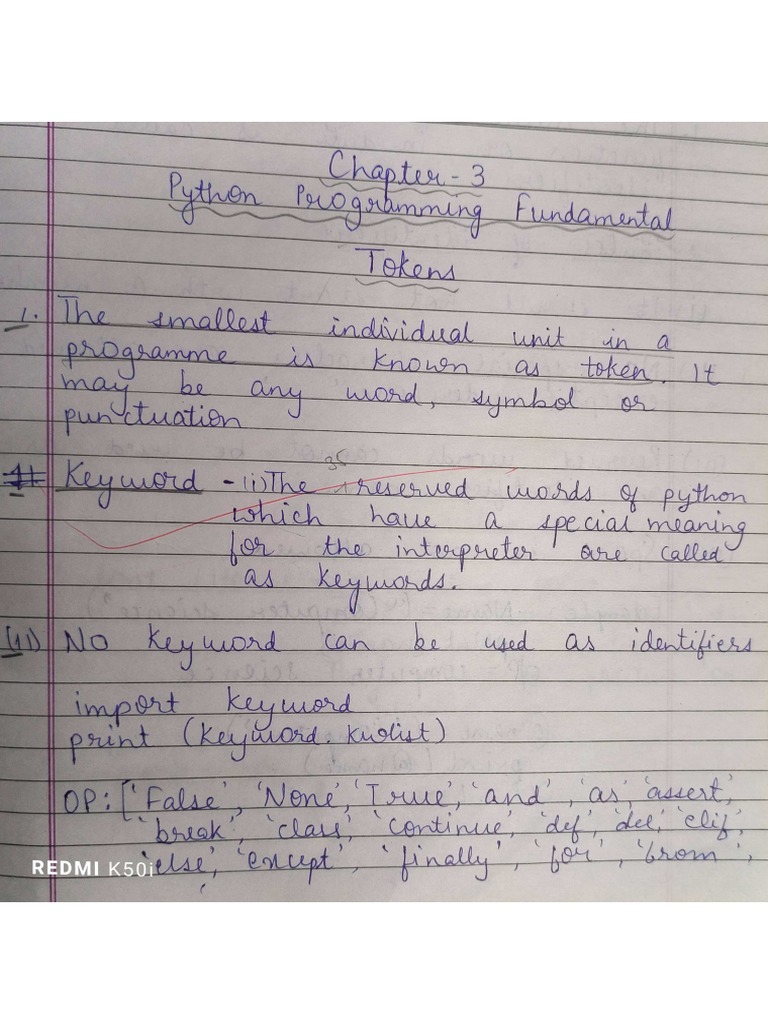 Chapter - 3
Python Programming Fundamental
Tokens
1. The smallest individual unit in a
programme is known as token. It
may be any word, symbol or
punctuation
Keyword - (i) The 35 reserved words of python
which have a special meaning
for the interpreter are called
as keywords.
(ii) No keyword can be used as identifiers
import keyword
print (keyword.kwlist)
OP: ['False', 'None', 'True', 'and', 'as', 'assert',
'break', 'class', 'continue', 'def', 'del', 'elif',
'else', 'except', 'finally', 'for', 'from',
REDMI K50i